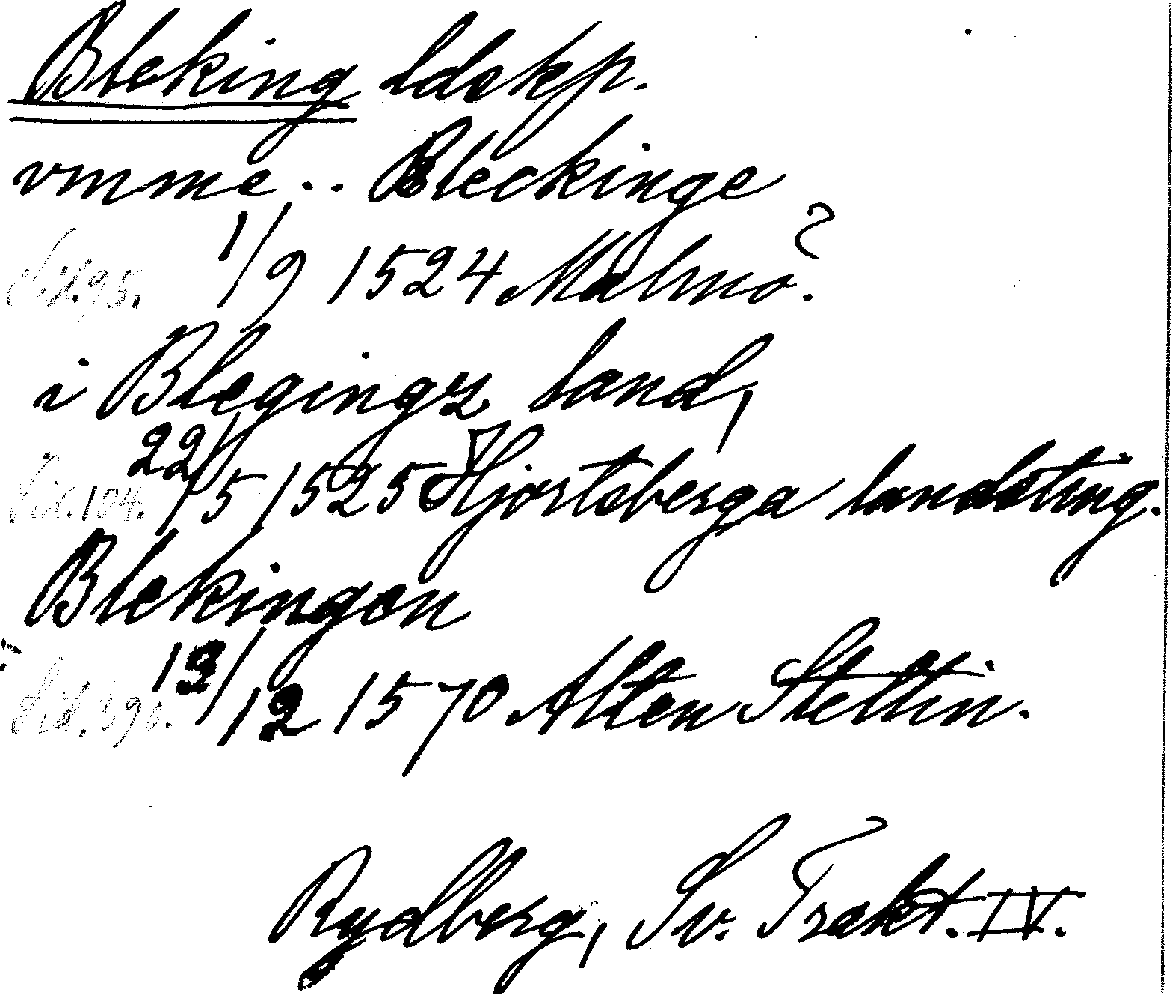 Bleking ldskp.
vmme .. Bleckinge
Sid. 95. 1/9 1524 Malmö.
i Blegingx land,
Sid. 104. 22/5 1525 Hjorteberga landsting.
Blekingen
Sid. 396. 13/12 1570 Alten Stettin.
Rydberg, Sv. Trakt. IV.